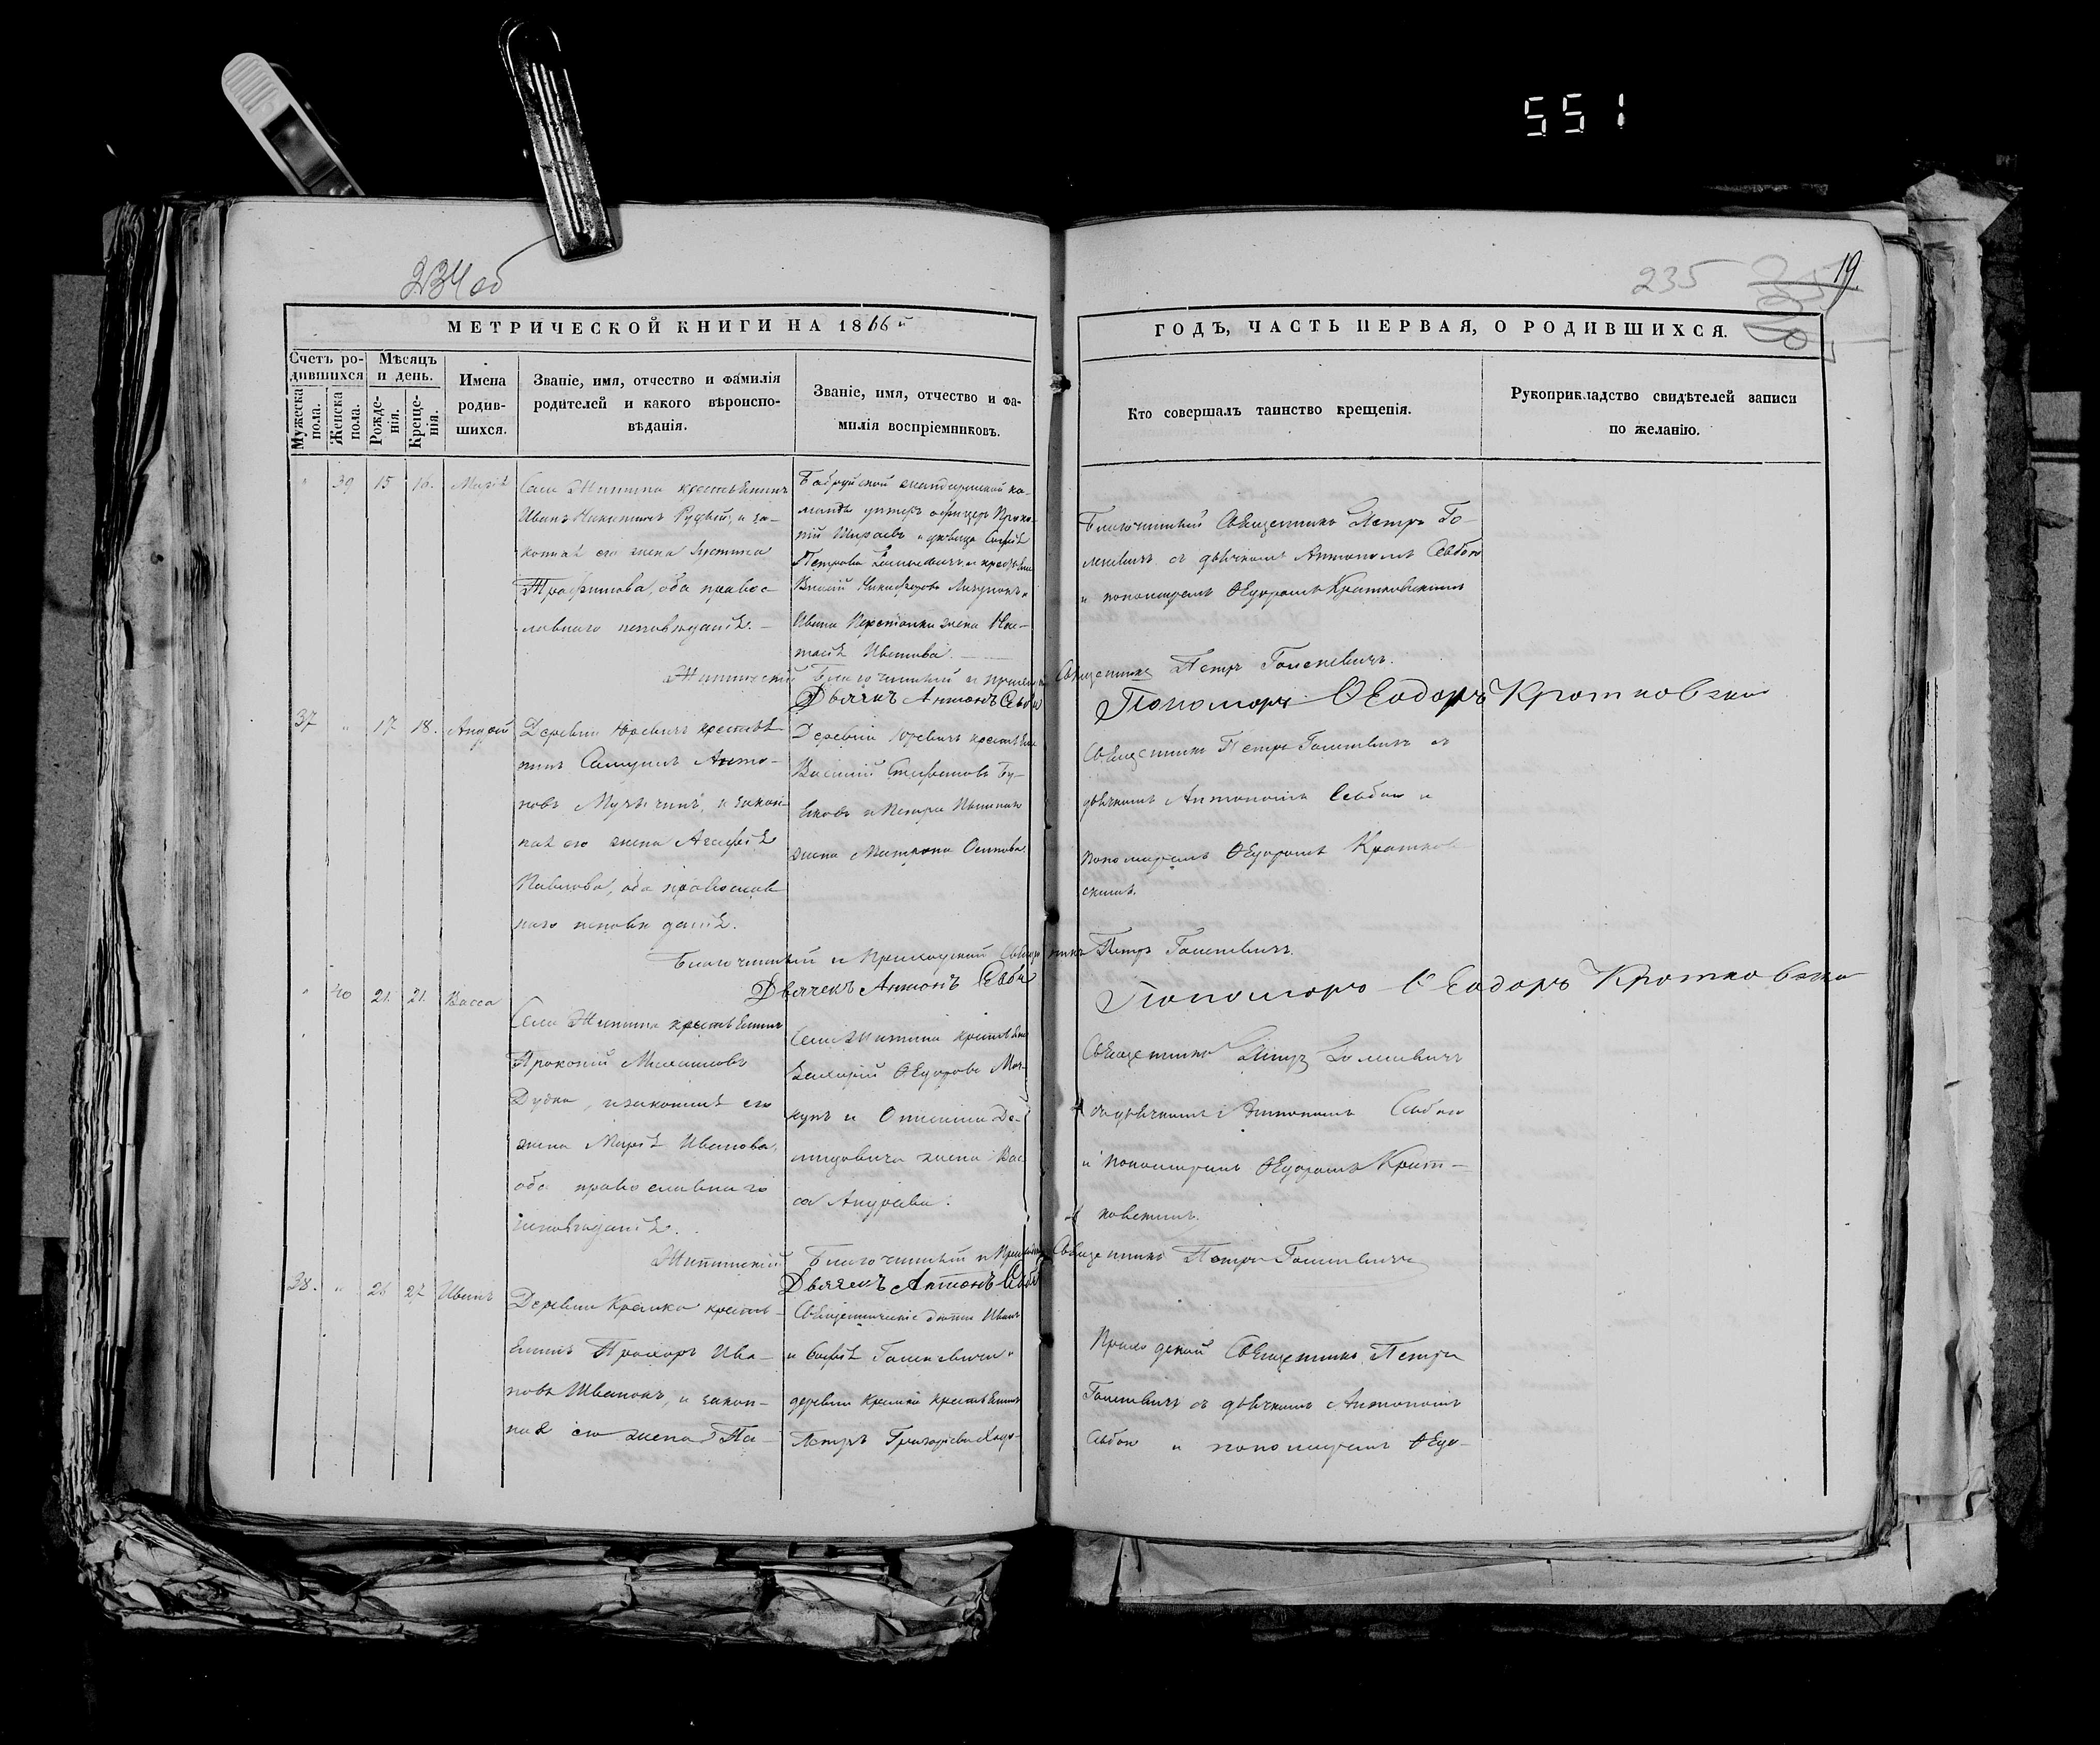 551
234 об
235
19
МЕТРИЧЕСКОЙ КНИГИ НА 1866 й
ГОДЪ, ЧАСТЬ ПЕРВАЯ, О РОДИВШИХСЯ.
Счетъ ро-
дившихся
Мужеска
пола.
Женска
пола.
Мѣсяцъ
и день.
Рожде-
нія.
Креще-
нія.
Имена
родив-
шихся.
Званіе, имя, отчество и фамилія
родителей и какого вѣроиспо-
вѣданія.
Званіе, имя, отчество и фа-
милія воспріемниковъ.
Кто совершалъ таинство крещенія.
Рукоприкладство свидѣтелей записи
по желанію.
" 39 15 16. Марія
Села Житина крестьянинъ
Иванъ Никитинъ Рудый, и за-
конная его жена Іустина
Трофимова, оба правос-
лавнаго исповѣданія.
Бобруйской жандармской ко-
манды унтеръ офицеръ Проко-
пій и дѣвица Софія
Петрова и крестьяне
Никифоровъ и
жена Нас-
тасія Иванова.
Благочинный Священникъ Петръ Го-
леневичъ съ дьячкомъ Антономъ Савбою
и пономаремъ Ѳеодоромъ Кротковскимъ
Житинскій Благочинный и Священникъ Петръ Голеневичъ.
Дьячекъ Антонъ Савба
Пономарь Ѳеодоръ Кротковскій
37 " 17 18. Андрей
Деревни Юревичъ крестья-
нинъ Самуилъ Анто-
новъ и закон-
ная его жена Агафія
Павлова, оба православ
наго исповѣданія.
Деревни Юревичъ крестьяне
Василій Стефановъ Бу-
и Петра
жена Матрона Осипова.
Священникъ Петръ Голеневичъ съ
дьячкомъ Антономъ Савбою и
пономаремъ Ѳеодоромъ Кротков
скимъ.
Благочинный и Приходской Священникъ Петръ Голеневичъ.
Дьячекъ Антонъ Савба
Пономарь Ѳеодоръ Кротковскій
" 40 21. 21. Васса
Села Житина крестьянинъ
Прокопій
Дудка, и законная его
жена Марія Иванова,
оба православнаго
исповѣданія.
Села Житина крестьяне
Ѳеодоровъ
и
жена Вас
са Андреева.
Священникъ Петръ Голеневичъ
съ дьячкомъ Антономъ Савбою
и пономаремъ Ѳеодоромъ Крот-
ковскимъ.
Житинскій Благочинный и Священникъ Петръ Голеневичъ
Дьячекъ Антонъ Савба
38. " 26 27 Иванъ
Деревни крестья-
нинъ Прохоръ Ива-
новъ и закон-
ная его жена Па-
Священническіе дѣти Иванъ
и Софія Голеневичи и
деревни крестьянинъ
Петръ Григорьевъ
Приходской Священникъ Петръ
Голеневичъ съ дьячкомъ Антономъ
Савбою и пономаремъ Ѳеодо-